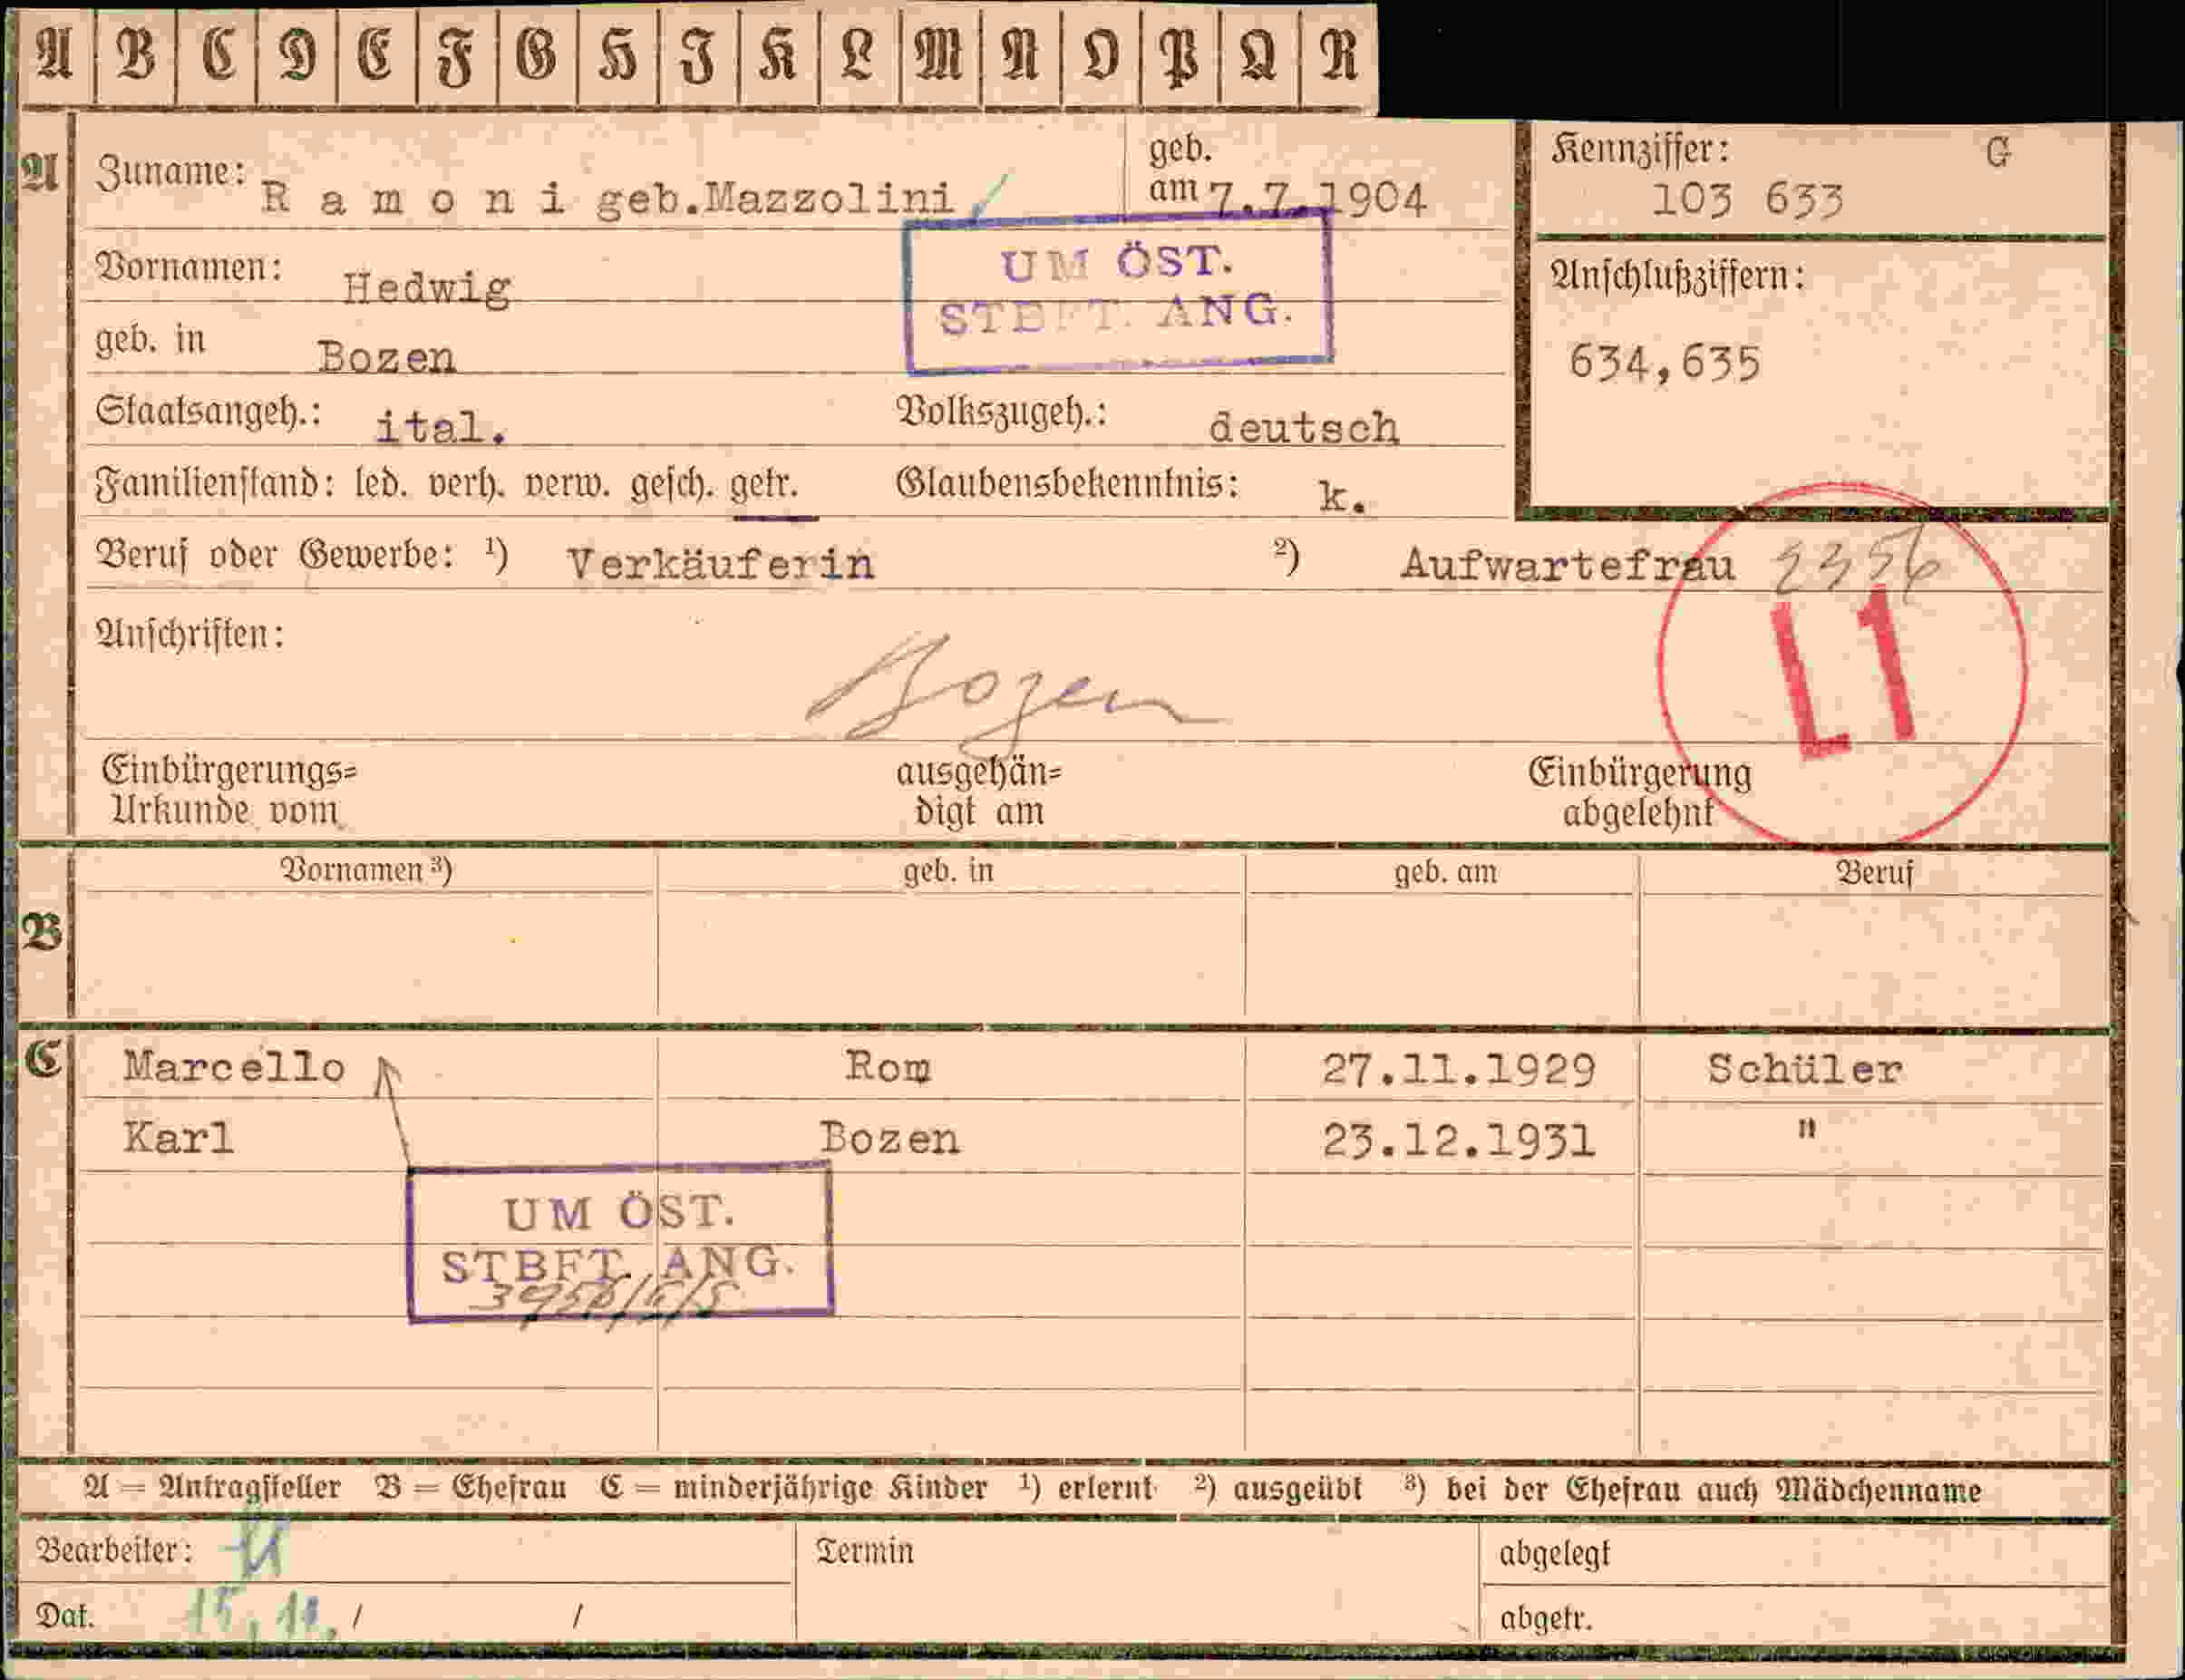 A B C D E F G H J K L M N O P Q R
A
Zuname: R a m o n i geb.Mazzolini
geb. am 7.7.1904
Kennziffer: G
103 633
UM ÖST.
STBFT. ANG.
Vornamen: Hedwig
Anschlußziffern:
634,635
geb. in Bozen
Staatsangeh.: ital. Volkszugeh.: deutsch
Familienstand: led. verh. verw. gesch. getr. Glaubensbekenntnis: k.
Beruf oder Gewerbe: ¹) Verkäuferin ²) Aufwartefrau
L1
Anschriften:
Bozen
Einbürgerungs= ausgehän= Einbürgerung
Urkunde vom digt am abgelehnt
B
Vornamen ³) geb. in geb. am Beruf
C
Marcello Rom 27.11.1929 Schüler
Karl Bozen 23.12.1931 "
UM ÖST.
STBFT. ANG.
A = Antragsteller B = Ehefrau C = minderjährige Kinder ¹) erlernt ²) ausgeübt ³) bei der Ehefrau auch Mädchenname
Bearbeiter: Termin abgelegt
Dat. 15.11. / / abgetr.